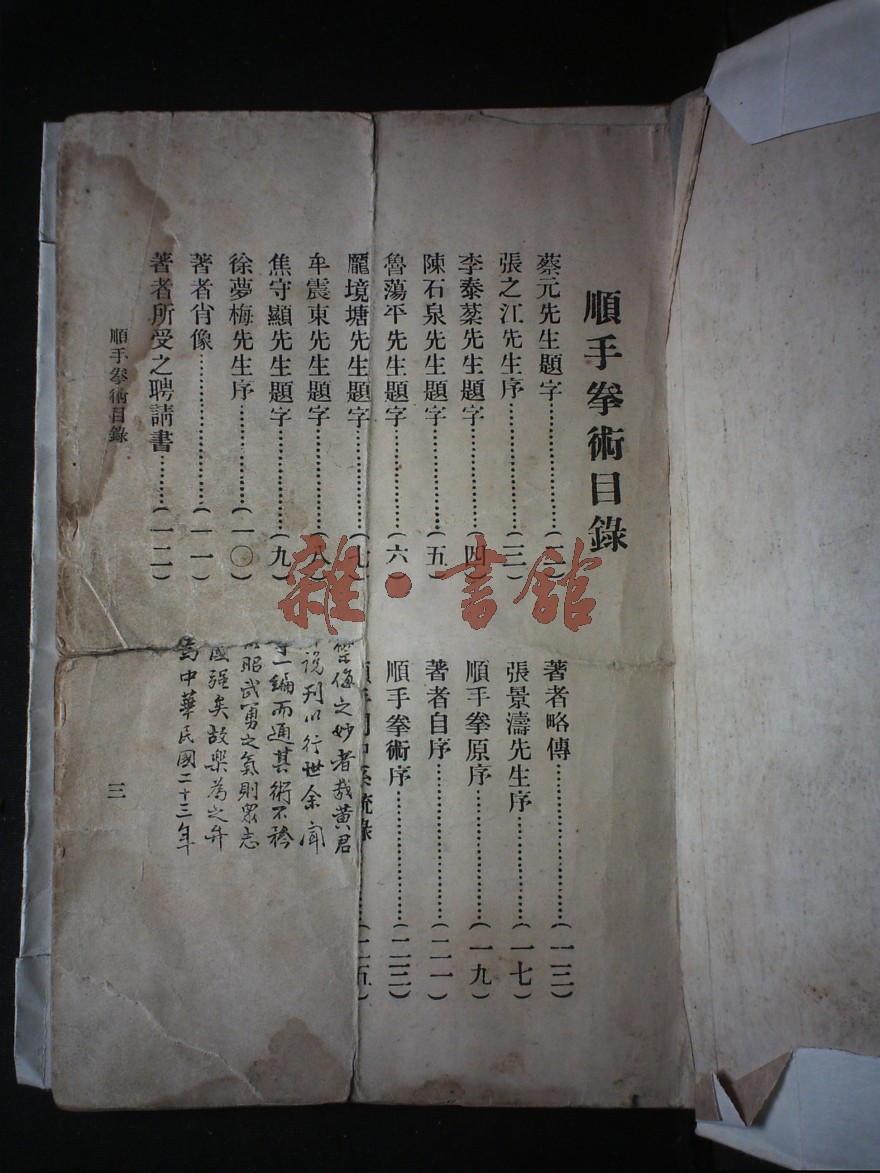 順手拳術目錄
蔡元先生題字…………(二)
張之江先生序…………(三)
李泰棻先生題字…………(四)
陳石泉先生題字…………(五)
魯蕩平先生題字…………(六)
龐境塘先生題字…………(七)
牟震東先生題字…………(八)
焦守顯先生題字…………(九)
徐夢梅先生序…………(一〇)
著者肖像…………(一一)
著者所受之聘請書……(一二)
著者略傳…………(一三)
張景濤先生序…………(一七)
順手拳原序…………(一九)
著者自序…………(二一)
順手拳術序…………(二三)
(二五)
禦侮之妙者哉黃君
說刊以行世余聞
一編而通其術不矜
昭武勇之氣則眾志
國强矣故樂為之弁
中華民國二十三年
順手拳術目錄
三
雜·書館